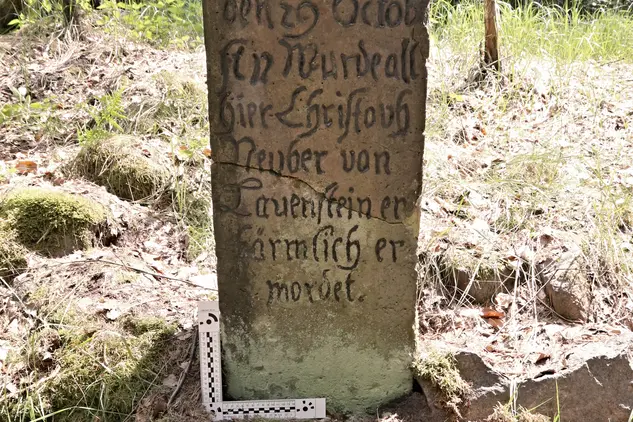 den 29 Octob
ſtn Wurde all
hier Chriſtoph
Neuber von
Lauenſtein er
härmlich er
mordet.